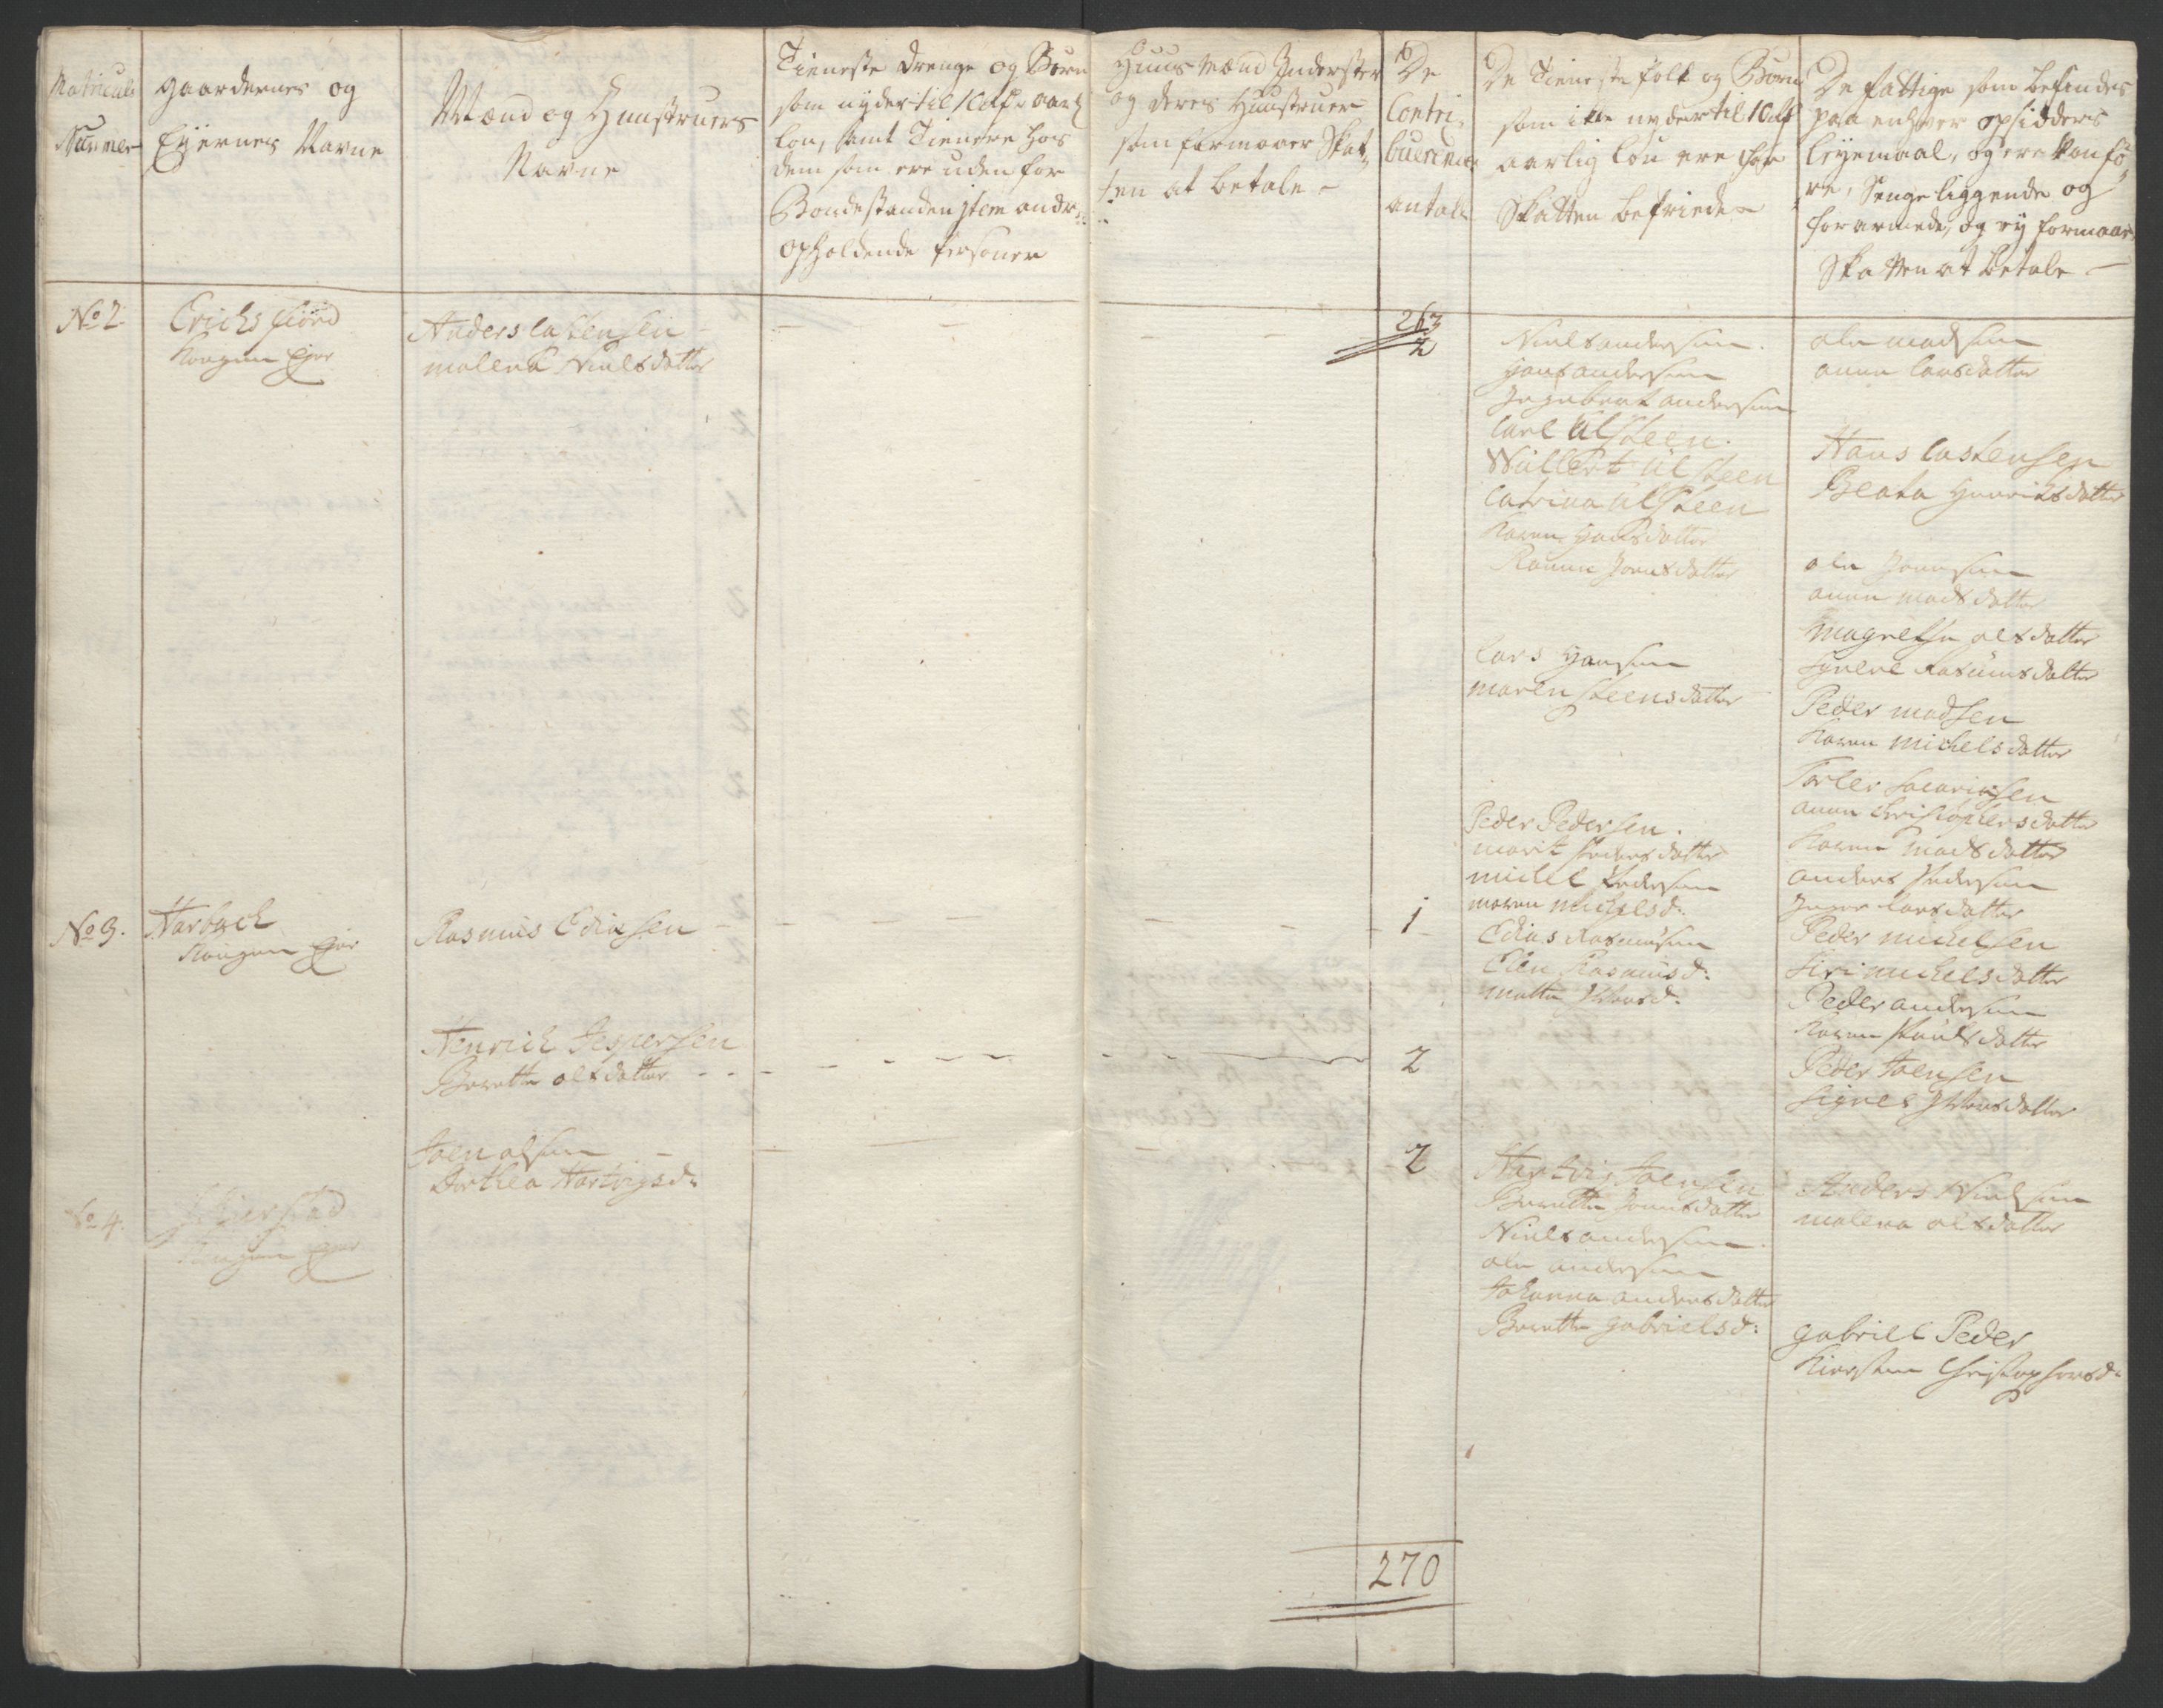 Matricul
Nummer
gaardernes og
Eyernes Navne
Mænd og Hunstruers
Navne
Tieneste drenge og Børn
som nyder til 10 aarl
løn, samt Tienere hos
dem som ere uden for
Bondestanden jtem andre
opholdende personer
Huus Mænd Jnderster
og deres Hunstruer
som formaaer Skat
ten at betale
De
Contri
buerendes
antall
De Tieneste folk og Børn
som ikke nyder til 10
aarlig løn ere for
Skatten befriede
De fattige som befindes
paa enhver opsidders
leyemaal, og ere vanfø
re, Sengeliggende og
forarmede, og ey formaar
Skatten at betale
No 2
Erichsfiord
Kongen Ejer
Anders Castensen
malena Nielsdatter
263
2
Niels andersen
Hans andersen
Ingebret andersen
Carl Ulsteen
Wullert Ulsteen
Catrina Ulsteen
Karen Hansdatter
Jonsdatter
Lars Hansen
maren steensdatter
Peder Pedersen
marit Pedersdatter
michel Pedersen
maren michelsd:
ole madsen
anna Larsdatter
Hans Castensen
Beata Henriksdatter
ole Joensen
anna madsdatter
magrethe olsdatter
Rasmusdatter
Peder madsen
Karen michelsdatter
anna Cristophersdatter
Karen madsdatter
anders Pedersen
Larsdatter
No 3.
Harbach
Kongen Ejer
Rasmus Ediasen
1
Edias Rasmusen
Elen Rasmusd:
mette
Peder michelsen
Siri michelsdatter
Peder andersen
Karen Paulsdatter
Henrich Jespersen
Berette olsdatter
2
Peder Joensen
Joen olsen
Dorthea Hartvigsd:
2
Hartvig Joensen
Berette Joensdatter
Niels andersen
ole andersen
Johanna andersdatter
Berette gabrielsd:
No 4.
Kongen Ejer
Anders Nielsen
malena olsdatter
gabriel Peder
Kirsten Christophersd:
270